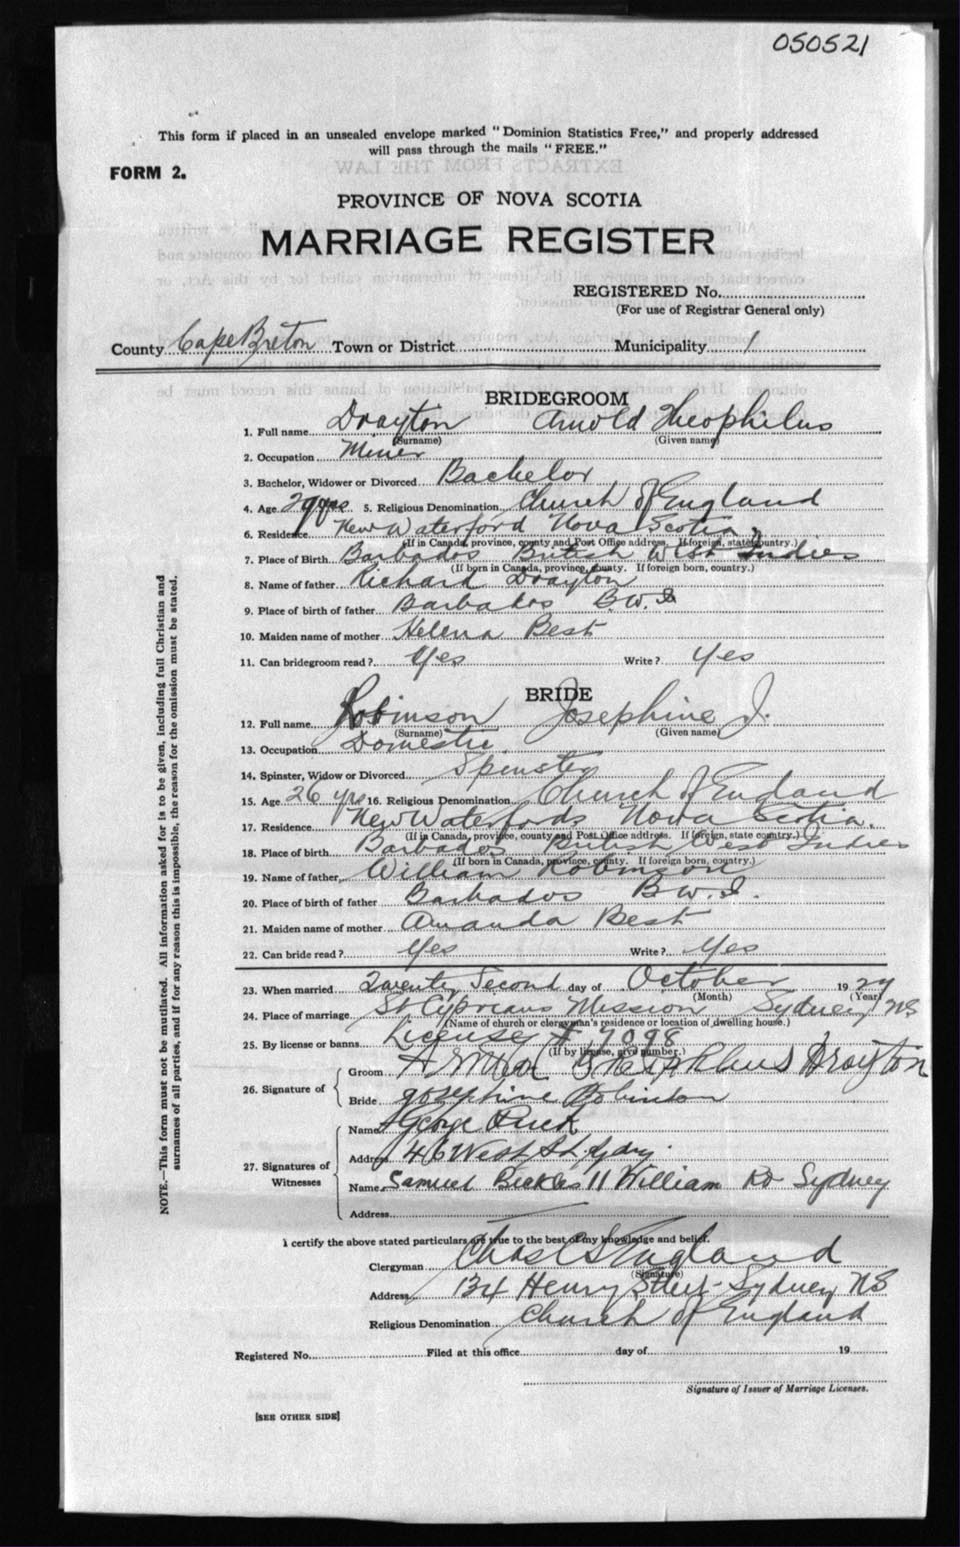 050521
This form if placed in an unsealed envelope marked "Dominion Statistics Free," and properly addressed
will pass through the mails "FREE."
FORM 2.
PROVINCE OF NOVA SCOTIA
MARRIAGE REGISTER
REGISTERED No.
(For use of Registrar General only)
County Cape Breton Town or District Municipality 1
BRIDEGROOM
1. Full name Drayton Arnold Theophilus
(Surname) (Given name)
2. Occupation Miner
3. Bachelor, Widower or Divorced Bachelor
4. Age 29 yrs 5. Religious Denomination Church of England
6. Residence New Waterford Nova Scotia
(If in Canada, province, county and Post Office address. If foreign, state country.)
7. Place of Birth Barbados British West Indies
(If born in Canada, province, county. If foreign born, country.)
8. Name of father Richard Drayton
9. Place of birth of father Barbados B.W.I
10. Maiden name of mother Helena Best
11. Can bridegroom read? Yes Write? Yes
BRIDE
12. Full name Robinson Josephine J.
(Surname) (Given name)
13. Occupation Domestic
14. Spinster, Widow or Divorced Spinster
15. Age 26 yrs 16. Religious Denomination Church of England
17. Residence New Waterford Nova Scotia.
(If in Canada, province, county and Post Office address. If foreign, state country.)
18. Place of birth Barbados British West Indies
(If born in Canada, province, county. If foreign born, country.)
19. Name of father, William Robinson
20. Place of birth of father Barbados B.W.I.
21. Maiden name of mother Amanda Best
22. Can bride read? Yes Write? Yes
23. When married Twenty Second day of October 19
(Month) (Year)
24. Place of marriage St Cyprians Mission Sydney NS
(Name of church or clergyman's residence or location of dwelling house.)
25. By license or banns License # 9098
(If by license, give number.)
26. Signature of
Groom Arnold Drayton
Bride Josephine Robinson
27. Signatures of Witnesses
Name George
Address 46 West St.
Name Samuel 11 William Sydney
Address
I certify the above stated particulars are true to the best of my knowledge and belief.
Clergyman Chas England
(Signature)
Address 134 Henry Street - Sydney NS
Religious Denomination Church of England
Registered No. Filed at this office day of 19
Signature of Issuer of Marriage Licenses.
[SEE OTHER SIDE]
NOTE.—This form must not be mutilated. All information asked for is to be given, including full Christian and
surnames of all parties, and if for any reason this is impossible, the reason for the omission must be stated.